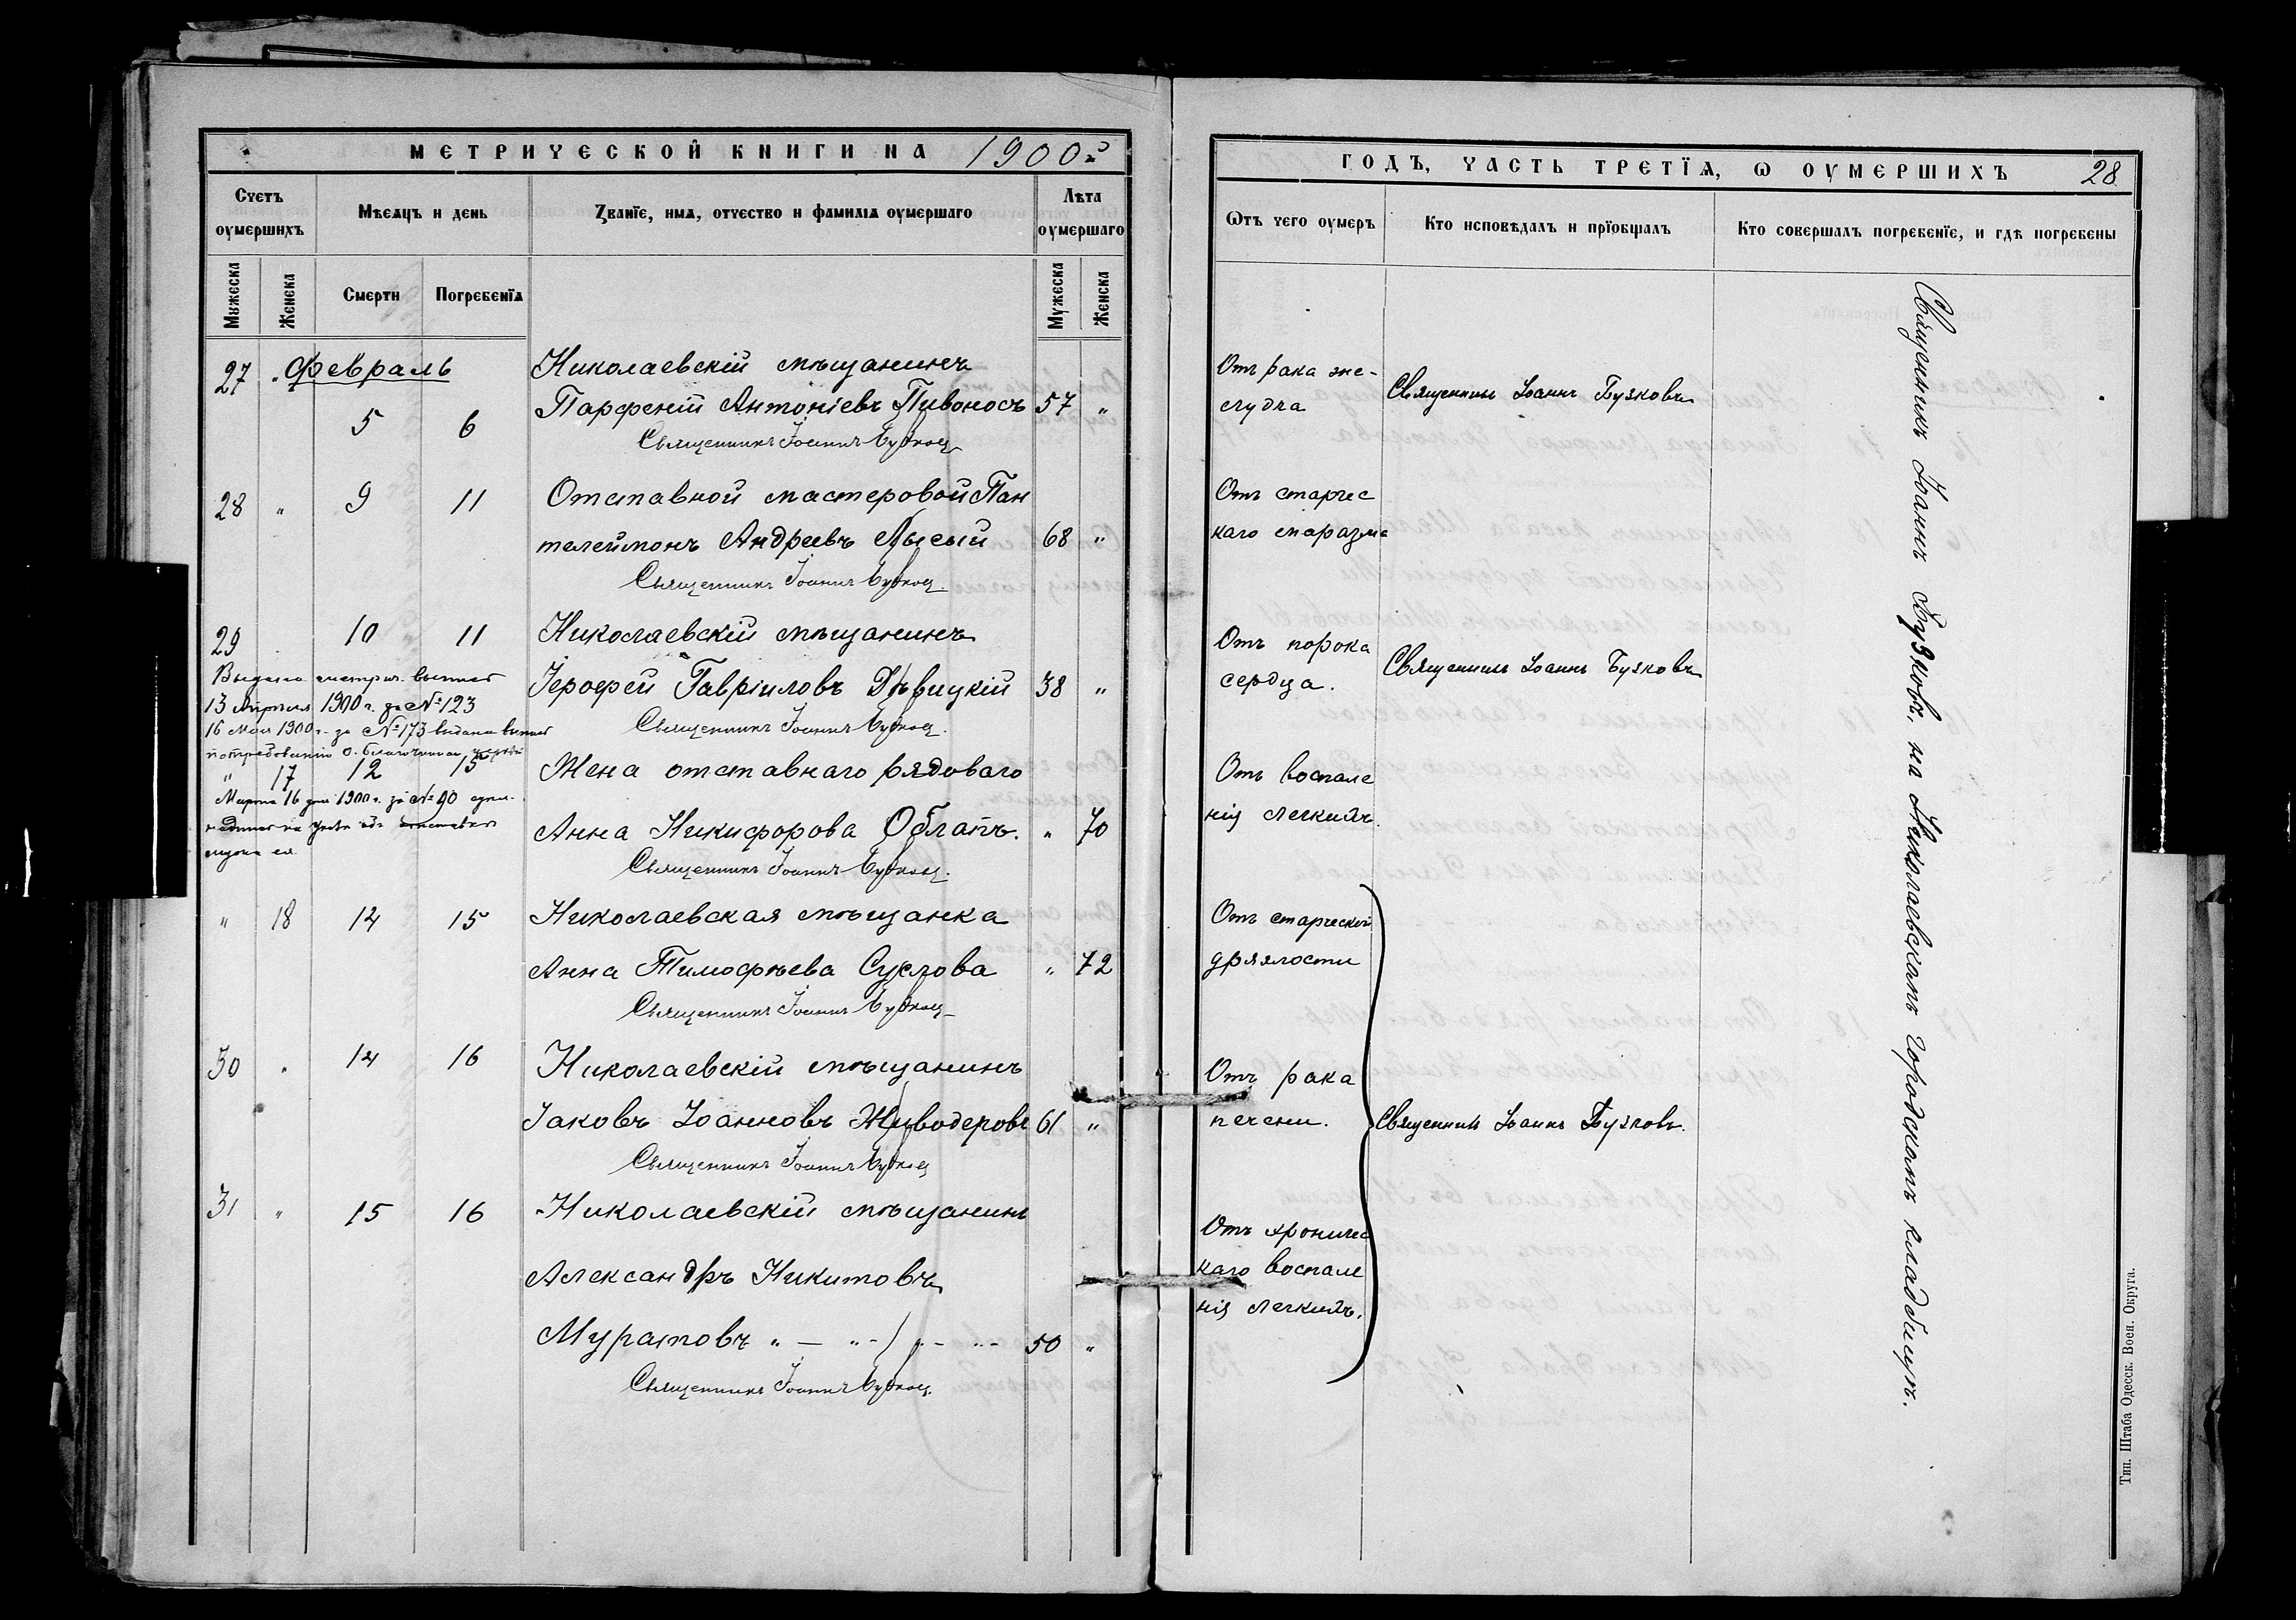 МЕТРИЧЕСКОЙ КНИГИ НА 1900й
Счетъ оумершихъ
Мѣсяцъ и день
Званїе, имя, отчество и фамилїя оумершаго
Лѣта оумершаго
Мужеска
Женска
Смерти
Погребенїя
Мужеска
Женска
27 " Февраль
5 6
Николаевскій мѣщанинъ
Парфеній Антоніевъ Пивоносъ 57 "
Священникъ Іоаннъ Бузковъ
28 " 9 11
Отставной мастеровой Пан
телеймонъ Андреевъ Лысый 68 "
Священникъ Іоаннъ Бузковъ
29 10 11
Николаевскій мѣщанинъ
Іерофей Гавріиловъ Дѣвицкій 38 "
Священникъ Іоаннъ Бузковъ
Выдана метрич. выпись
13 Апрѣля 1900 г. за № 123
16 Мая 1900 г. за № 173 выдана выпись
по требованію о. благочиннаго
" 17 12 15
Жена отставнаго рядоваго
Анна Никифорова Облапъ. " 70
Священникъ Іоаннъ Бузковъ
Марта 16 дня 1900 г. за № 90
мужа ея.
" 18 14 15
Николаевская мѣщанка
Анна Тимофѣева Суслова " 72
Священникъ Іоаннъ Бузковъ
30 " 14 16
Николаевскій мѣщанинъ
Іаковъ Іоанновъ Живодеровъ 61 "
Священникъ Іоаннъ Бузковъ
31 " 15 16
Николаевскій мѣщанинъ
Александръ Никитовъ
Муратовъ " — " - " - " - 50 "
Священникъ Іоаннъ Бузковъ
ГОДЪ, ЧАСТЬ ТРЕТЇЯ, Ѡ ОУМЕРШИХЪ 28
Ѡтъ чего оумеръ
Кто исповѣдалъ и прїобщалъ
Кто совершалъ погребенїе, и гдѣ погребены
Отъ рака же-
лудка
Священникъ Іоаннъ Бузковъ
Отъ старчес
каго маразма
Отъ порока
сердца.
Священникъ Іоаннъ Бузковъ
Отъ воспале
нія легкихъ.
Отъ старческой
дряхлости
Отъ рака
печени.
Священникъ Іоаннъ Бузковъ.
Отъ хроничес
каго воспале
нія легкихъ.
Священникъ Іоаннъ Бузковъ, на Николаевскомъ городскомъ кладбищѣ.
Тип. Штаба Одесск. Воен. Округа.